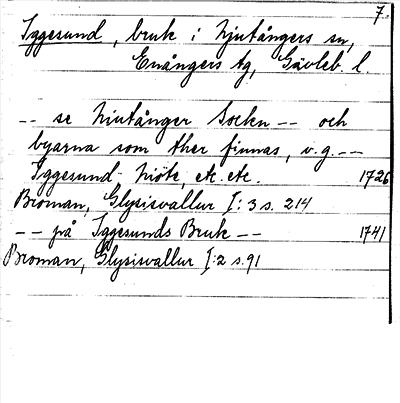 7.
Iggesund, bruk i Njutångers sn,
Enångers tg, Gävleb. l.
-- se Niutånger Sockn -- och
byarna som ther finnas, v.g. --
Iggesund Niöte, etc. etc. 1726
Broman, Glysisvallur I: 3 s. 214
-- på Iggesunds Bruk -- 1741
Broman, Glysisvallur I:2 s. 91